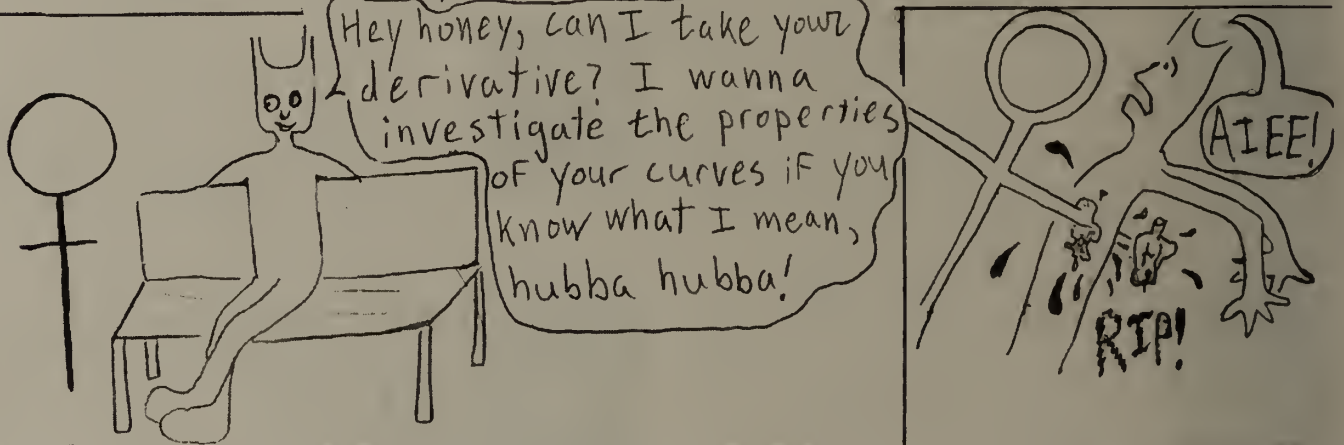 Hey honey, can I take your
derivative? I wanna
investigate the properties
of your curves if you
know what I mean,
hubba hubba!
AIEE!
RIP!